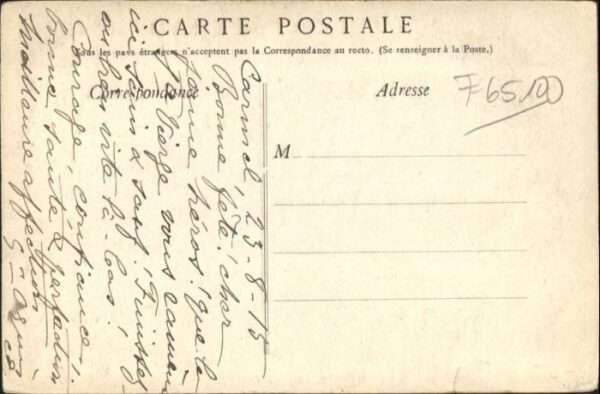 CARTE POSTALE
Tous les pays étrangers n'acceptent pas la Correspondance au recto. (Se renseigner à la Poste.)
Correspondance
Adresse
M
765.100
Carmel, 23-8-15
Bonne fête! cher
jeune héros! que la
Ste Vierge vous ramène
ici sain & sauf! Puissiez
vite là-bas!
Courage, confiance,
bonne santé &
meilleure affection